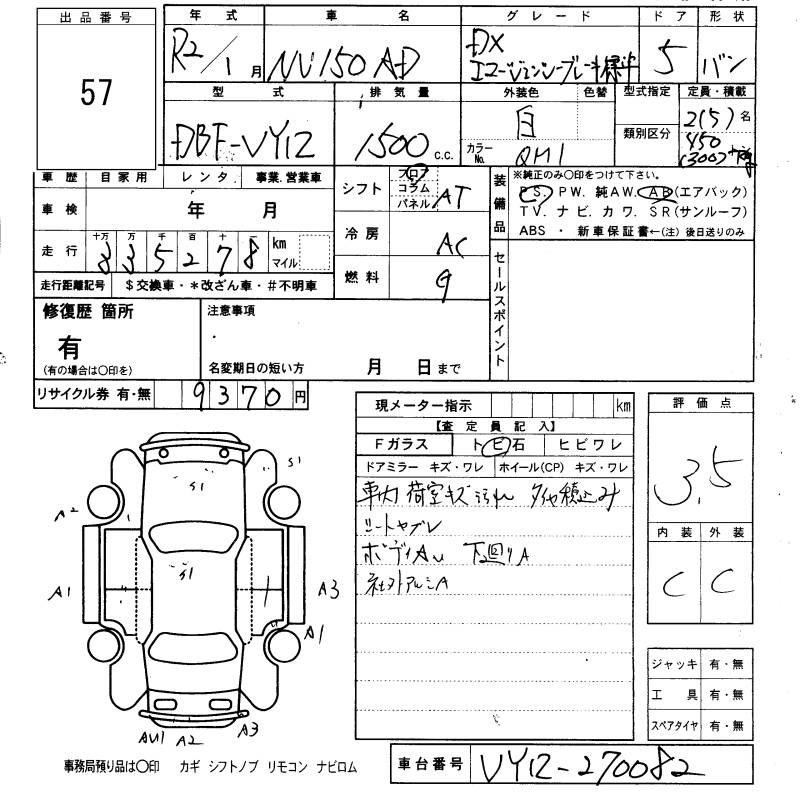 出品番号 年式 車名 グレード ドア 形状
57 R2/1月 NV150 AD DX エマージェンシーブレーキ標準 5 バン
型式 排気量 外装色 色替 型式指定 定員・積載
DBF-VY12 1500 c.c. 白 類別区分 2(5)名
カラーNo. QM1 450
(300)
車歴 自家用 レンタ 事業.営業車 シフト フロア コラム パネル AT 装備品 ※純正のみ○印をつけて下さい。
PS. PW. 純AW. AB(エアバック)
車検 年 月 TV. ナビ. カワ. SR(サンルーフ)
冷房 AC ABS ・ 新車保証書←(注) 後日送りのみ
走行 十万 万 千 百 十 一 km マイル
335278
燃料 G セールスポイント
走行距離記号 $交換車・*改ざん車・#不明車
修復歴 箇所 注意事項
有
(有の場合は○印を) 名変期日の短い方 月 日まで
リサイクル券 有・無 9370円
現メーター指示 km 評価点
【査定員記入】 3.5
Fガラス トビ石 ヒビワレ
ドアミラー キズ・ワレ ホイール(CP) キズ・ワレ
車内 荷室キズ 汚れ タイヤ積込み
シートヤブレ
ボディAU 下廻りA
社外アルミA
内装 外装
C C
S1 S1
A2
S1
A1 A3
A1
AU1 A2 A3
ジャッキ 有・無
工具 有・無
スペアタイヤ 有・無
事務局預り品は○印 カギ シフトノブ リモコン ナビロム
車台番号 VY12-270082